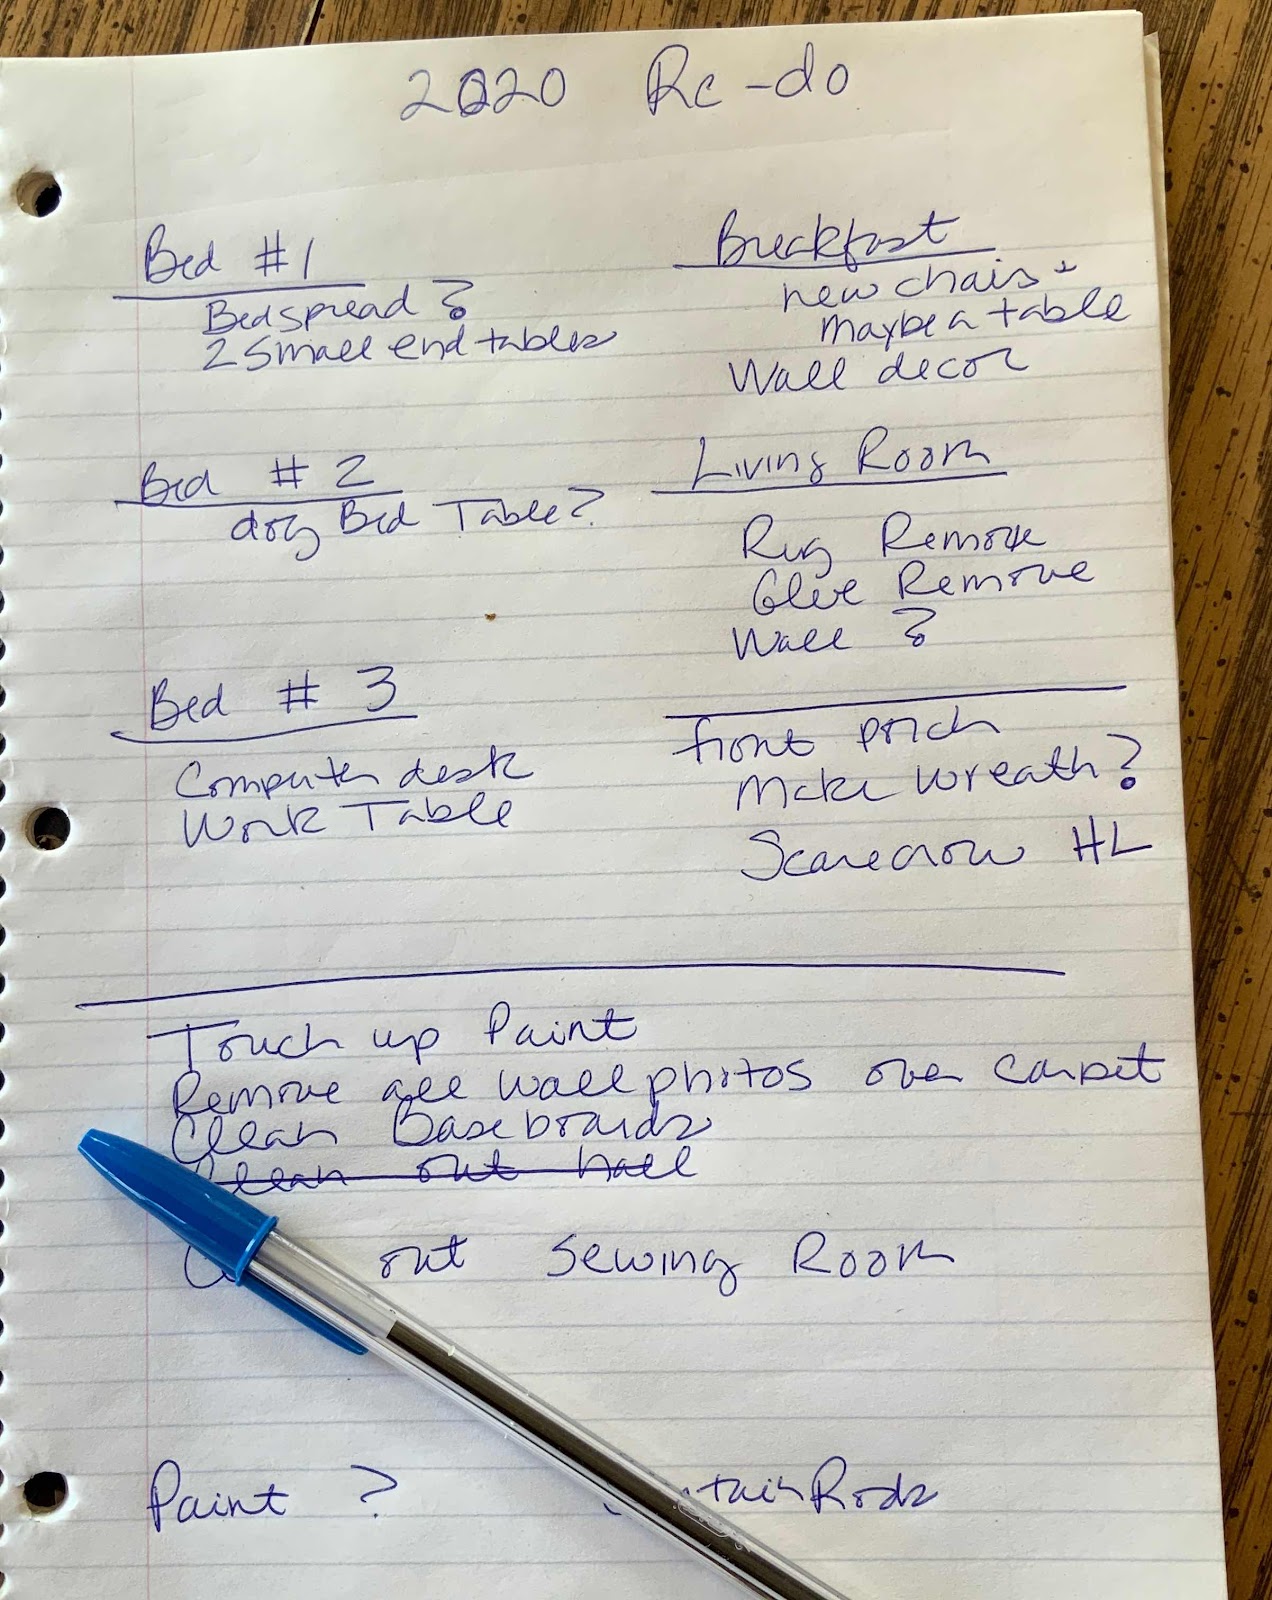 2020 Re-do
Bed #1
Bedspread?
2 small end tables
Bed #2
dog Bed Table?
Bed #3
Computer desk
Work Table
Breakfast
new chairs +
maybe a table
Wall decor
Living Room
Rug Remove
Glue Remove
Wall?
front porch
Make wreath?
Scarecrow HL
Touch up Paint
Remove all wall photos over carpet
Clean Baseboards
Clean out hall
out Sewing Room
Paint?
Rods